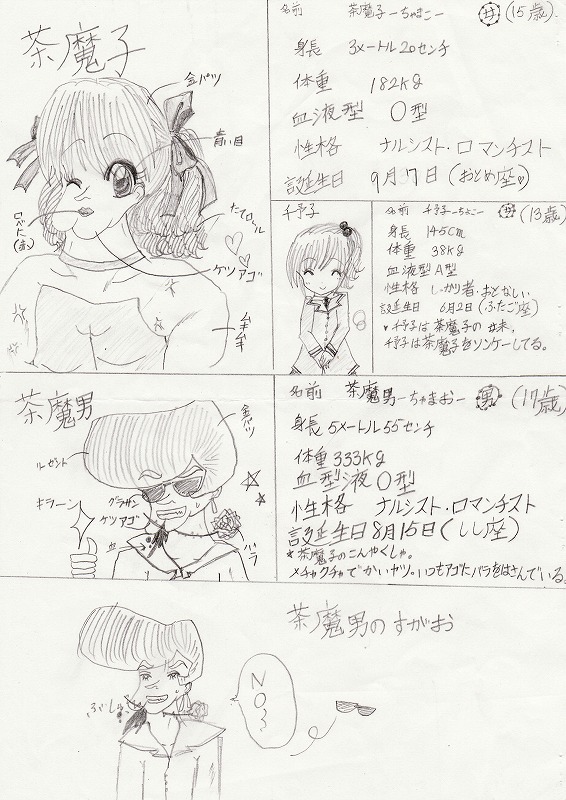 茶魔子
金パツ
青い目
口べに(赤)
たてロール
ケツアゴ
ムキムキ
名前 茶魔子ーちゃまこー 女 (15歳)
身長 3メートル20センチ
体重 182kg
血液型 O型
性格 ナルシスト・ロマンチスト
誕生日 9月17日 (おとめ座♥)
千予子
名前 千予子ーちよこー 女 (13歳)
身長 145cm
体重 38kg
血液型 A型
性格 しっかり者・おとなしい
誕生日 6月2日 (ふたご座)
千予子は茶魔子の妹。
千予子は茶魔子をソンケーしてる。
茶魔男
金パツ
キラーン
グラサン
ケツアゴ
血
バラ
名前 茶魔男ーちゃまおー 男 (17歳)
身長 5メートル55センチ
体重 333kg
血型液 O型
性格 ナルシスト・ロマンチスト
誕生日 8月15日 (しし座)
*茶魔子のこんやくしゃ。
メチャクチャでかいヤツ。いつもアゴにバラをはさんでいる。
茶魔男のすがお
ぶしゅ
NO〜